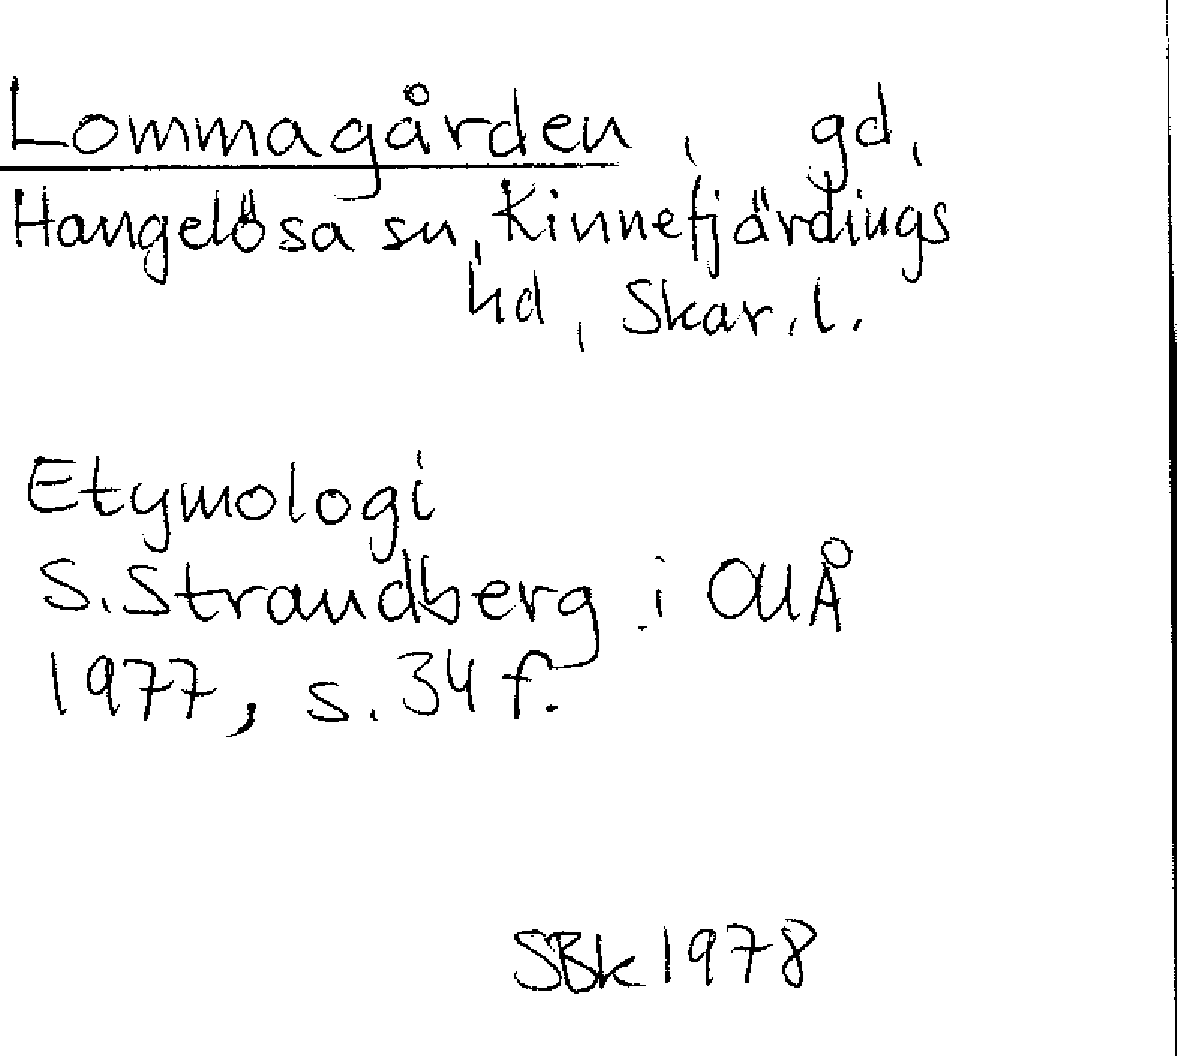 Lommagården, gd,
Hangelösa sn, Kinnefjärdings
hd, Skar. l.
Etymologi
S. Strandberg i OUÅ
1977, s. 34 f.
SBk 1978